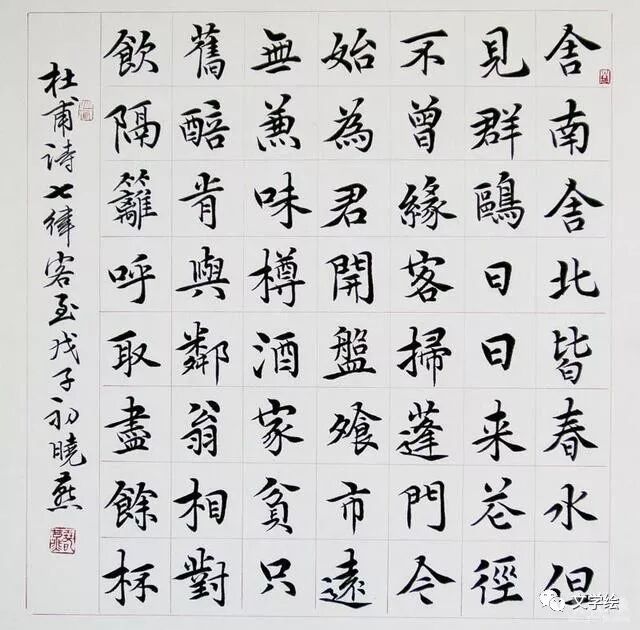 舍南舍北皆春水但
見群鷗日日来花徑
不曾緣客掃蓬門今
始為君開盤飱市遠
無兼味樽酒家貧只
舊醅肯與鄰翁相對
飲隔籬呼取盡餘杯
杜甫诗七律客至戊子初曉燕
文学绘